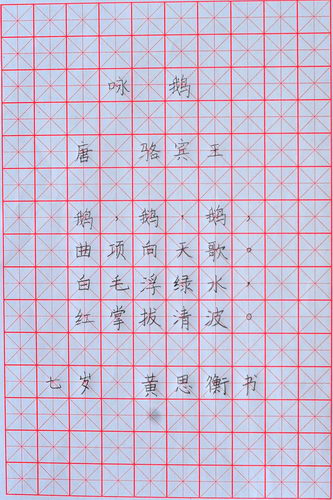 咏 鹅
唐 骆宾王
鹅，鹅，鹅，
曲项向天歌。
白毛浮绿水，
红掌拔清波。
七岁 黄思衡书